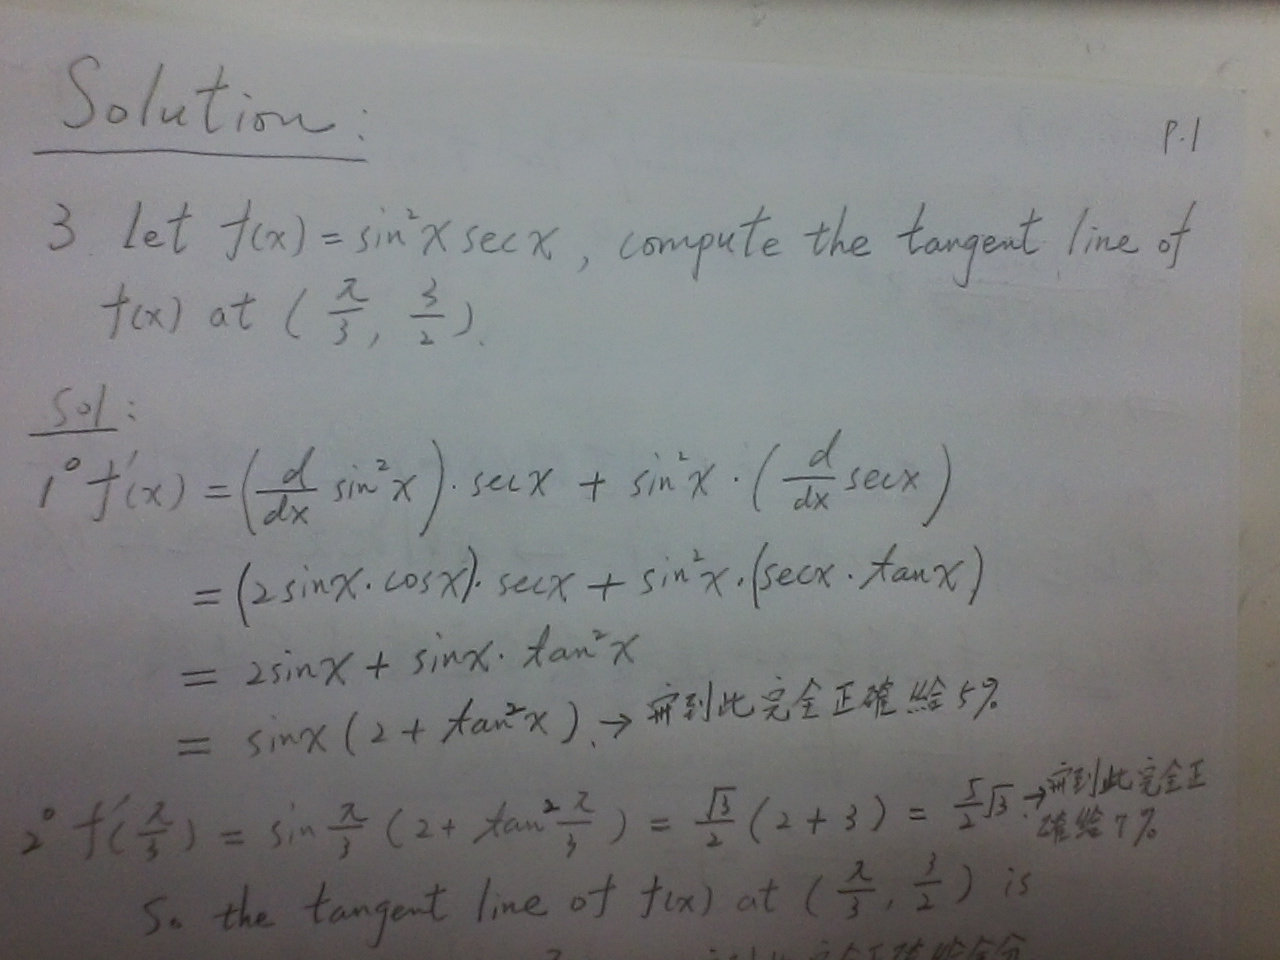 Solution:
P.1
3. Let f(x) = sin²x secx, compute the tangent line of
f(x) at (π/3, 3/2).
Sol:
1° f'(x) = (d/dx sin²x)·secx + sin²x·(d/dx secx)
= (2sinx·cosx)·secx + sin²x·(secx·tanx)
= 2sinx + sinx·tan²x
= sinx(2 + tan²x). → 算到此完全正確給5%
2° f'(π/3) = sin π/3 (2 + tan² π/3) = √3/2 (2+3) = 5/2 √3. → 算到此完全正
確給7%
So the tangent line of f(x) at (π/3, 3/2) is
到此完全正確給全分